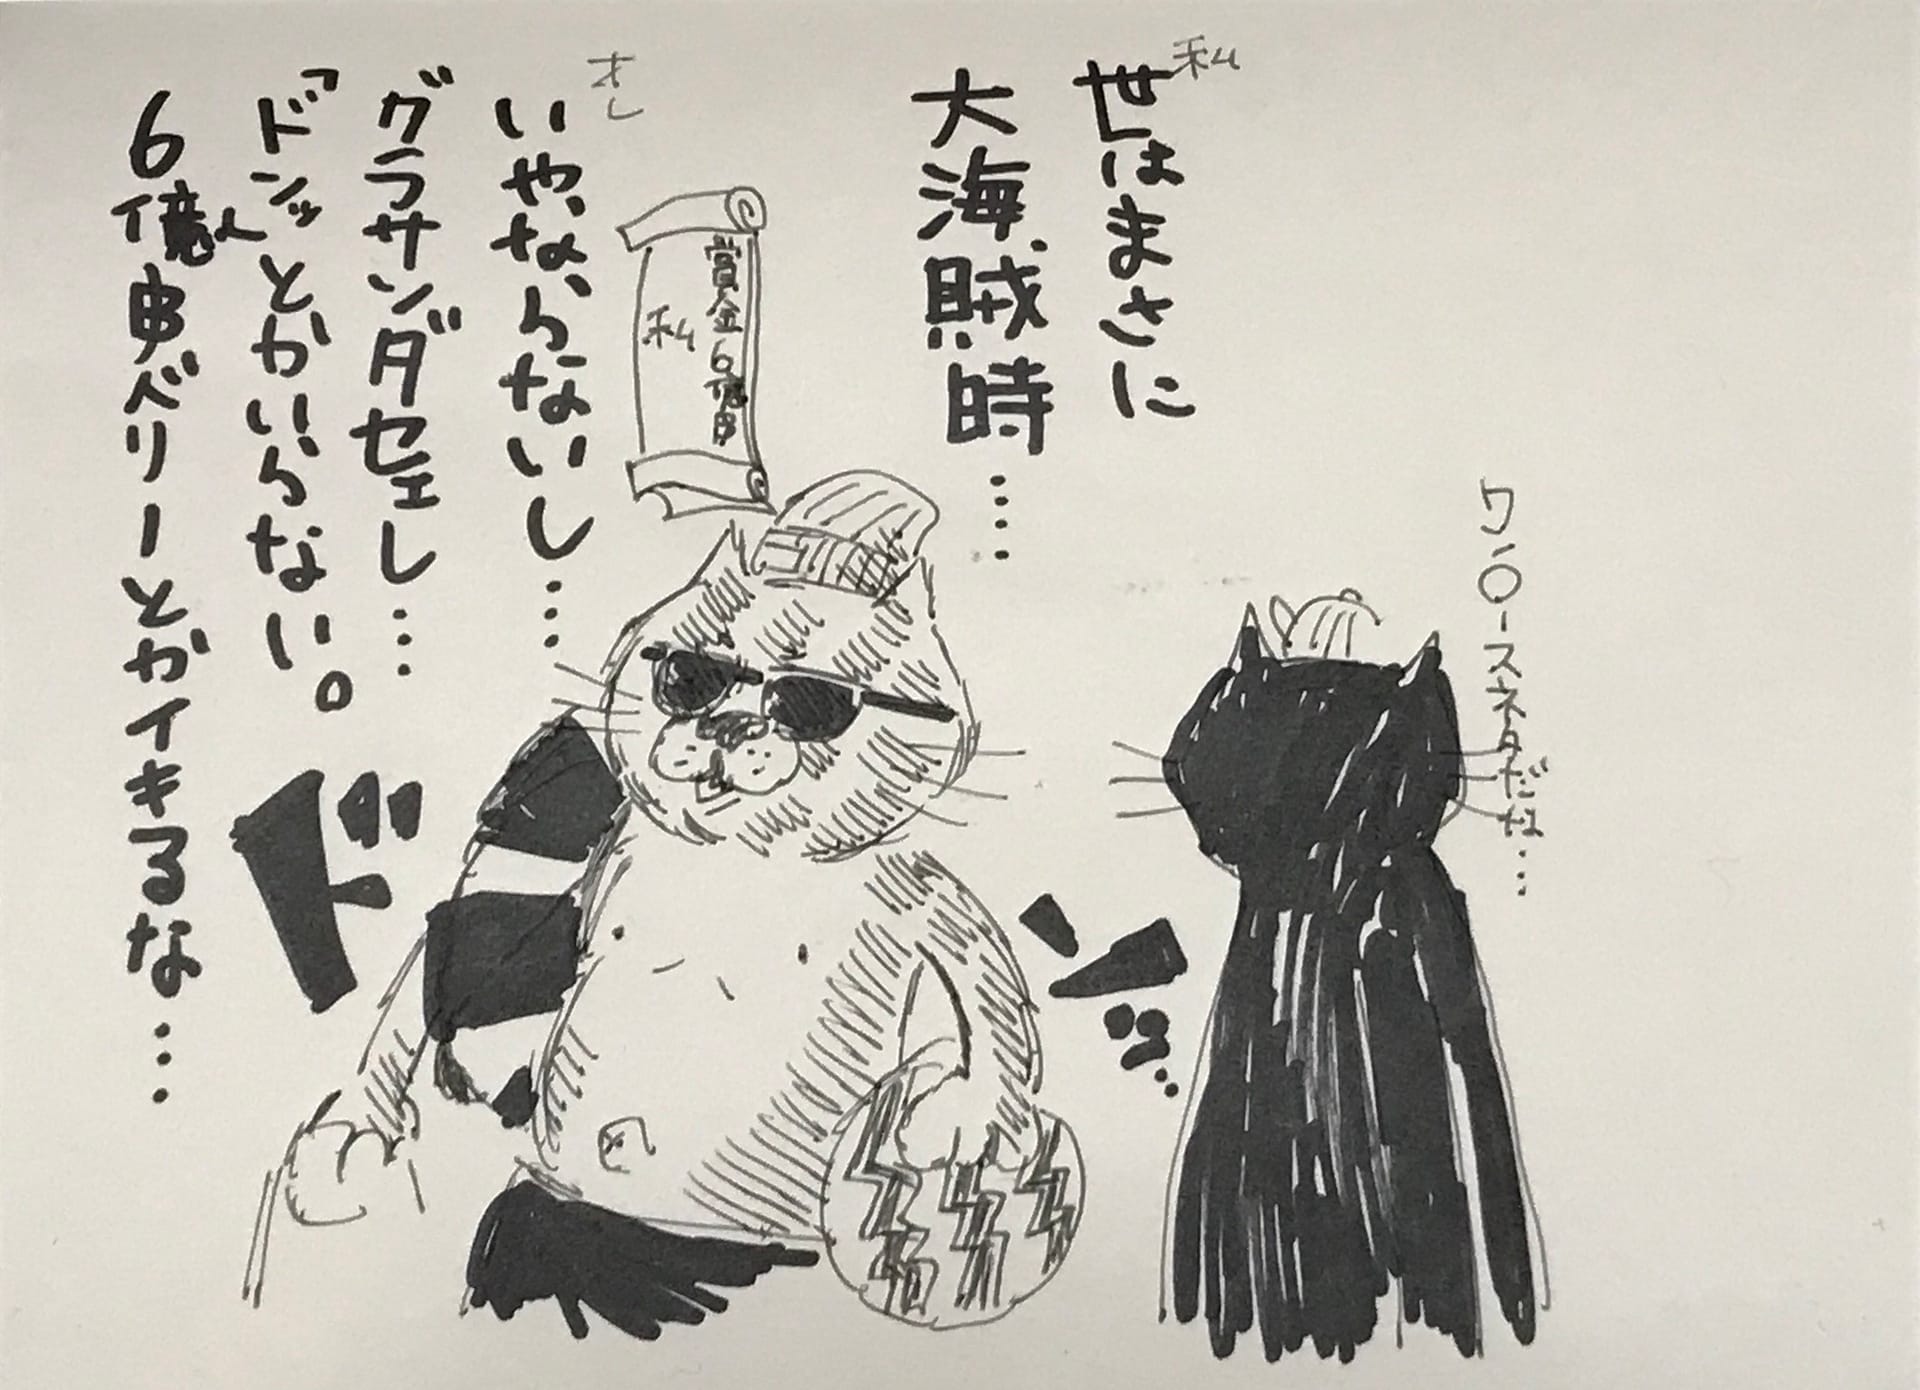 ワン○ースネタだな…
私
世はまさに
大海賊時……
賞金6億串
私
オレ
いや、ならないし…
グラサンダセェし…
「ドンッ」とかいらない。
6億串ベリーとかイキるな…
ドンッ‥